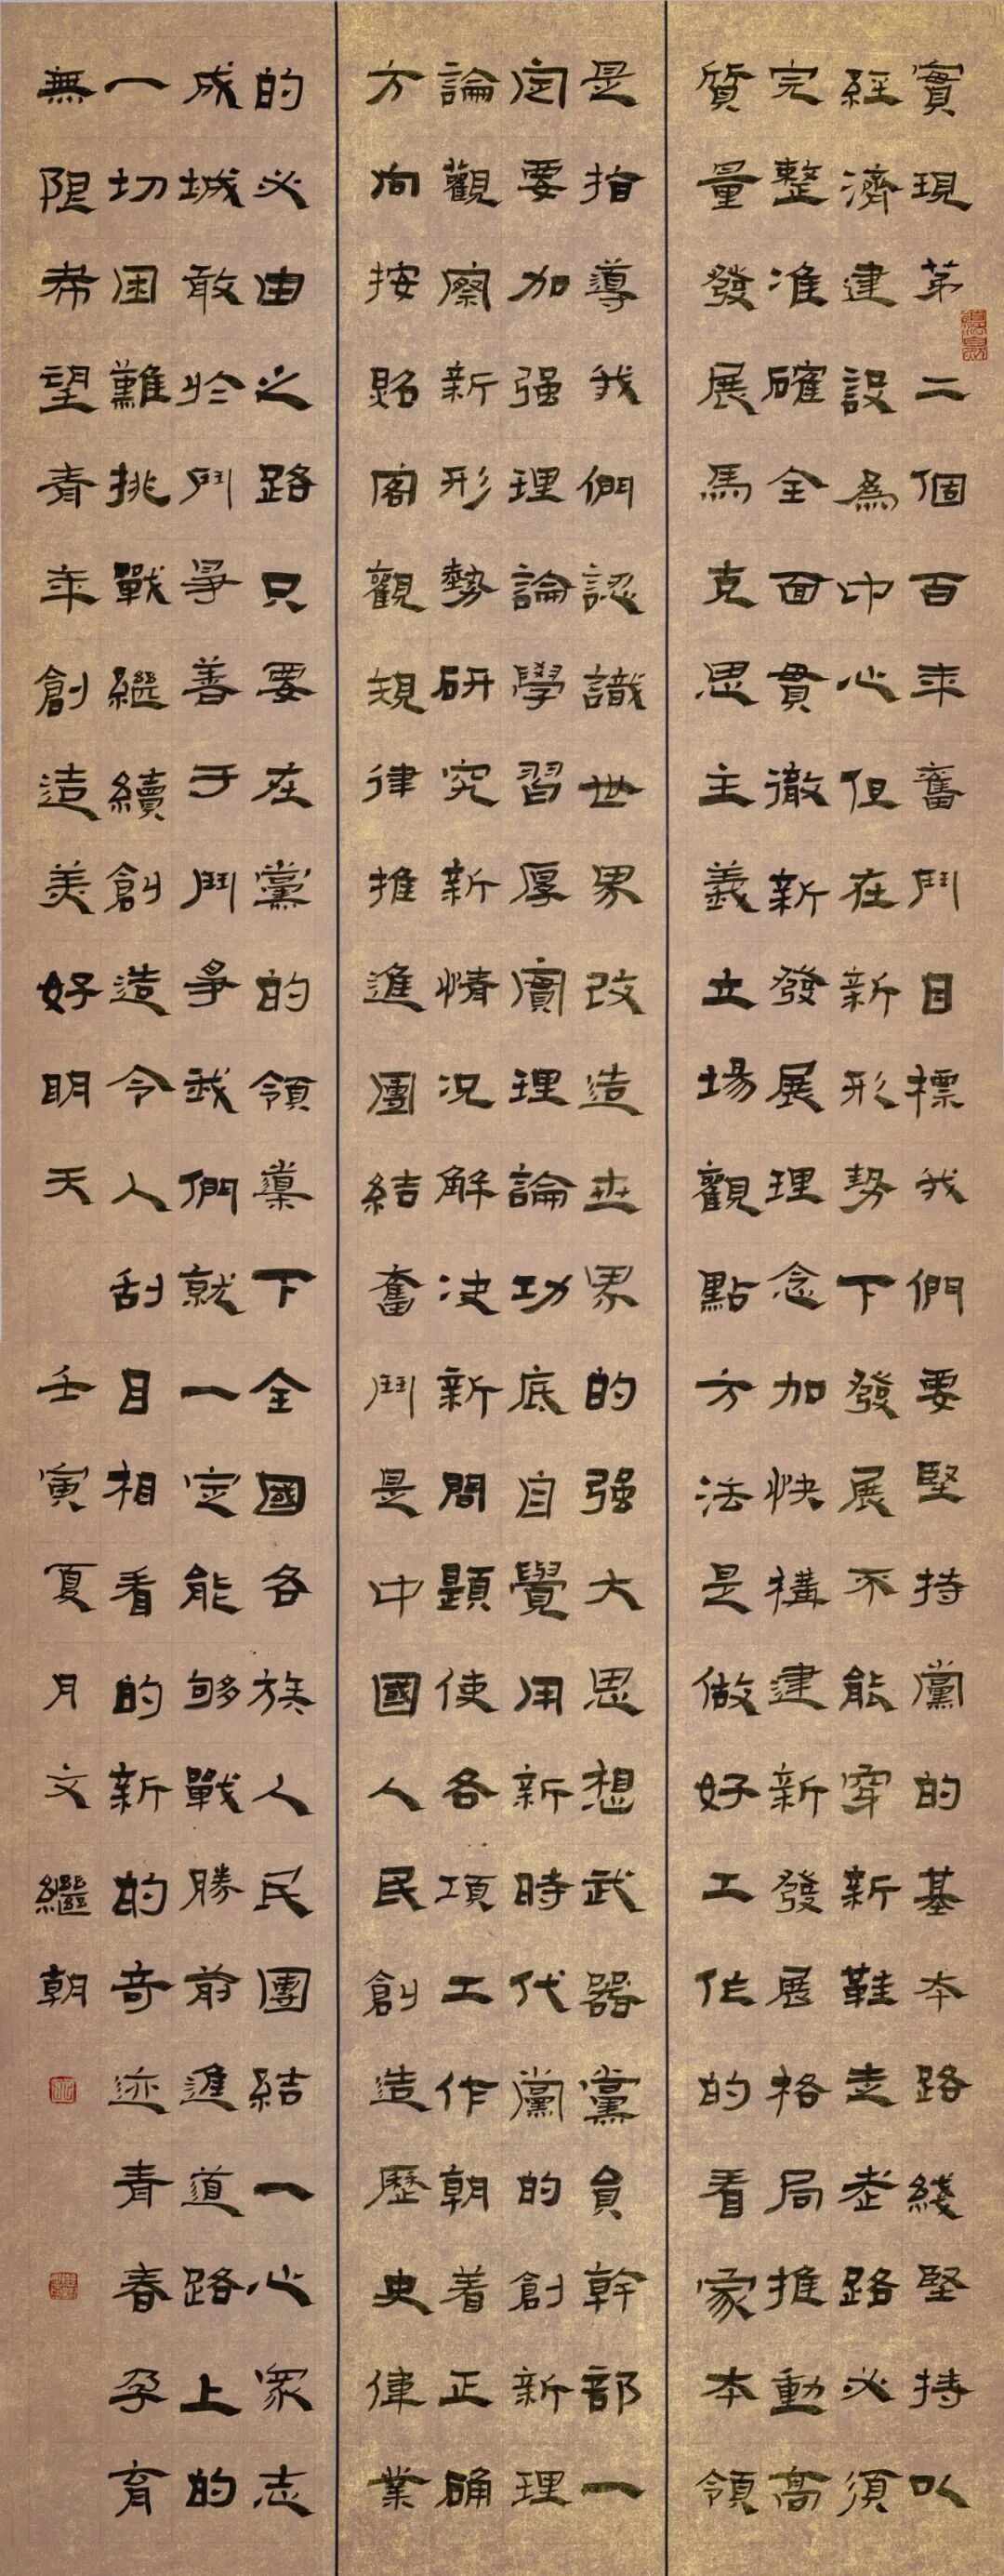 實現第二個百年奮鬥目標我們要堅持黨的基本路綫堅持以
經濟建設為中心但在新形勢下發展不能穿新鞋走老路必須
完整准確全面貫徹新發展理念加快構建新發展格局推動高
質量發展馬克思主義立場觀點方法是做好工作的看家本領
是指導我們認識世界改造世界的强大思想武器黨員幹部一
定要加强理論學習厚實理論功底自覺用新時代黨的創新理
論觀察新形勢研究新情况解决新問題使各項工作朝着正确
方向按照客觀規律推進團結奮鬥是中國人民創造歷史偉業
的必由之路只要在黨的領導下全國各族人民團結一心衆志
成城敢於鬥爭善于鬥爭我們就一定能够戰勝前進道路上的
一切困難挑戰繼續創造令人刮目相看的新的奇迹青春孕育
無限希望青年創造美好明天 壬寅夏月文繼朝